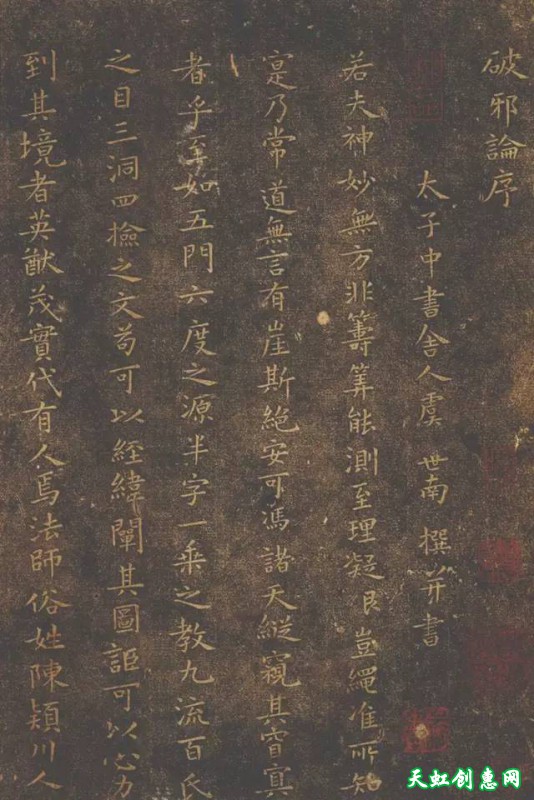 破邪論序
太子中書舍人虞世南撰并書
若夫神妙無方非籌筭能測至理凝邈豈繩准所知
寔乃常道無言有崖斯絕安可馮諸天縱窺其窅冥
者乎至如五門六度之源半字一乘之教九流百氏
之目三洞四檢之文苟可以經緯闡其圖詎可以心力
到其境者英猷茂實代有人焉法師俗姓陳潁川人
天虹创惠网